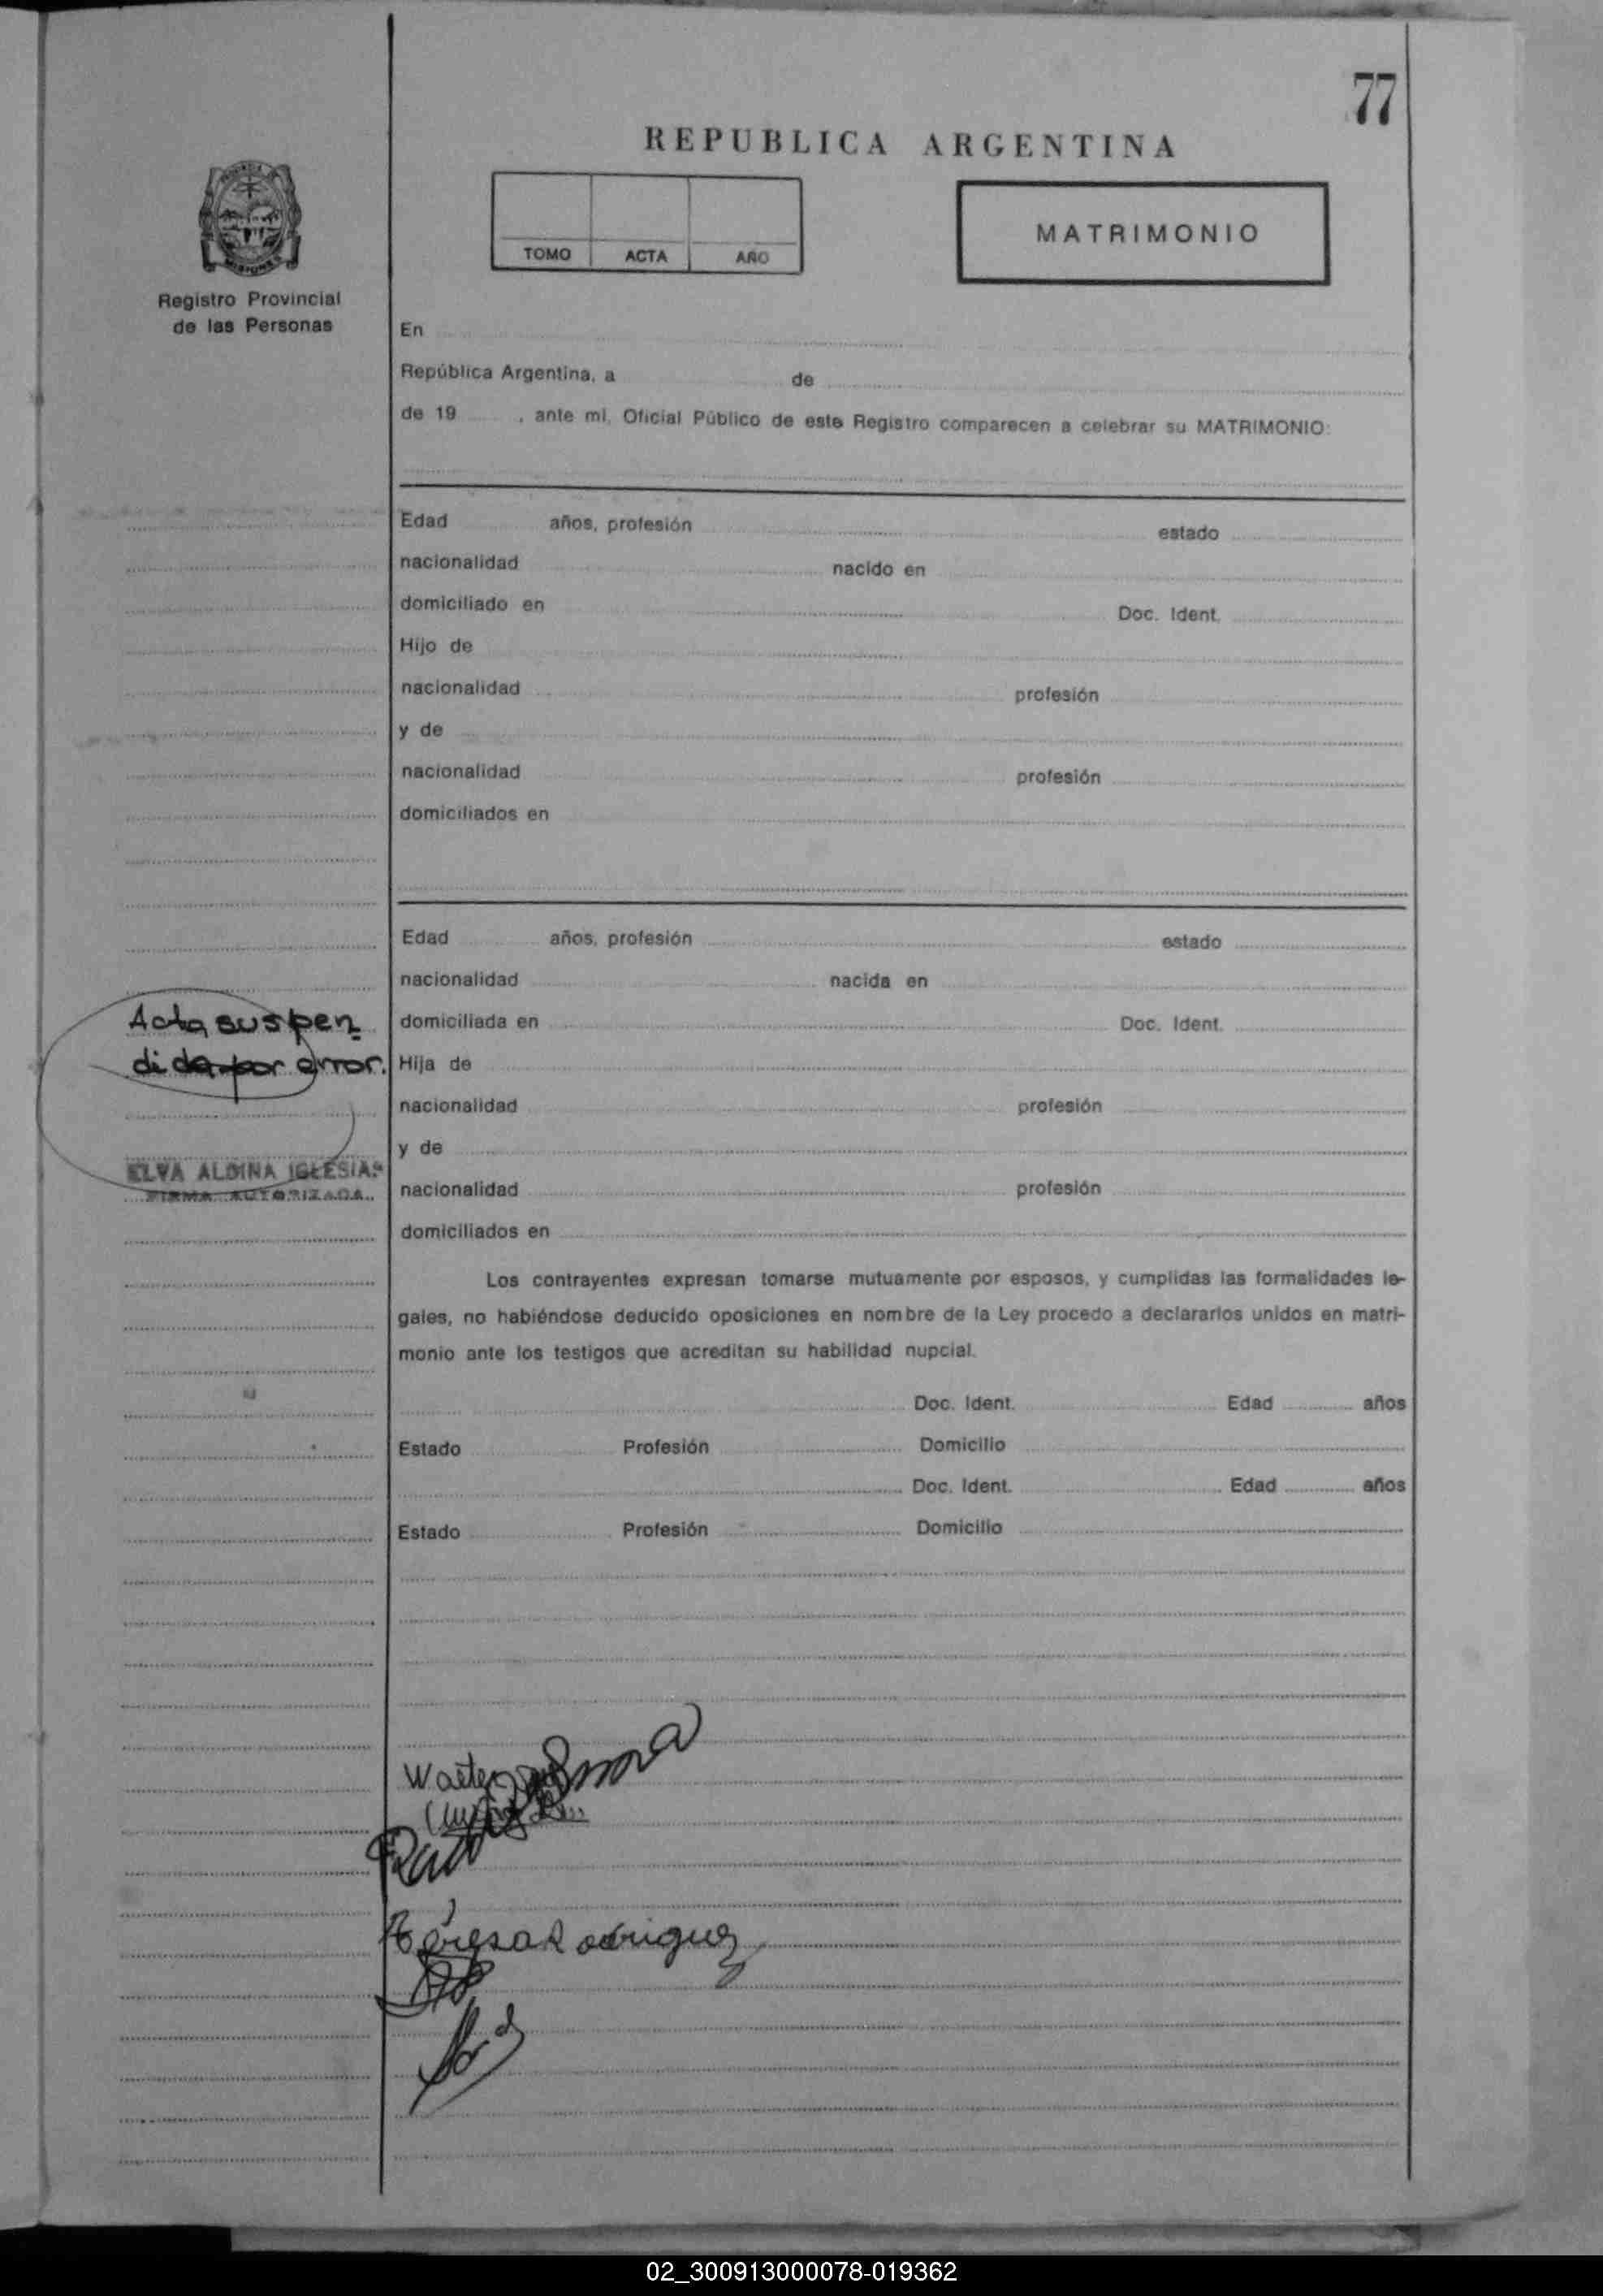 77
REPUBLICA ARGENTINA
TOMO ACTA AÑO
MATRIMONIO
PROVINCIA DE
MISIONES
Registro Provincial
de las Personas
En
República Argentina, a de
de 19 , ante mí, Oficial Público de este Registro comparecen a celebrar su MATRIMONIO:
Edad años, profesión estado
nacionalidad nacido en
domiciliado en Doc. Ident.
Hijo de
nacionalidad profesión
y de
nacionalidad profesión
domiciliados en
Edad años, profesión estado
nacionalidad nacida en
domiciliada en Doc. Ident.
Hija de
nacionalidad profesión
y de
nacionalidad profesión
domiciliados en
Acta suspen
dida por error.
ELVA ALDINA IGLESIAS
FIRMA AUTORIZADA
Los contrayentes expresan tomarse mutuamente por esposos, y cumplidas las formalidades le-
gales, no habiéndose deducido oposiciones en nombre de la Ley procedo a declararlos unidos en matri-
monio ante los testigos que acreditan su habilidad nupcial.
Doc. Ident. Edad años
Estado Profesión Domicilio
Doc. Ident. Edad años
Estado Profesión Domicilio
Walter
Teresa Rodriguez
02_300913000078-019362